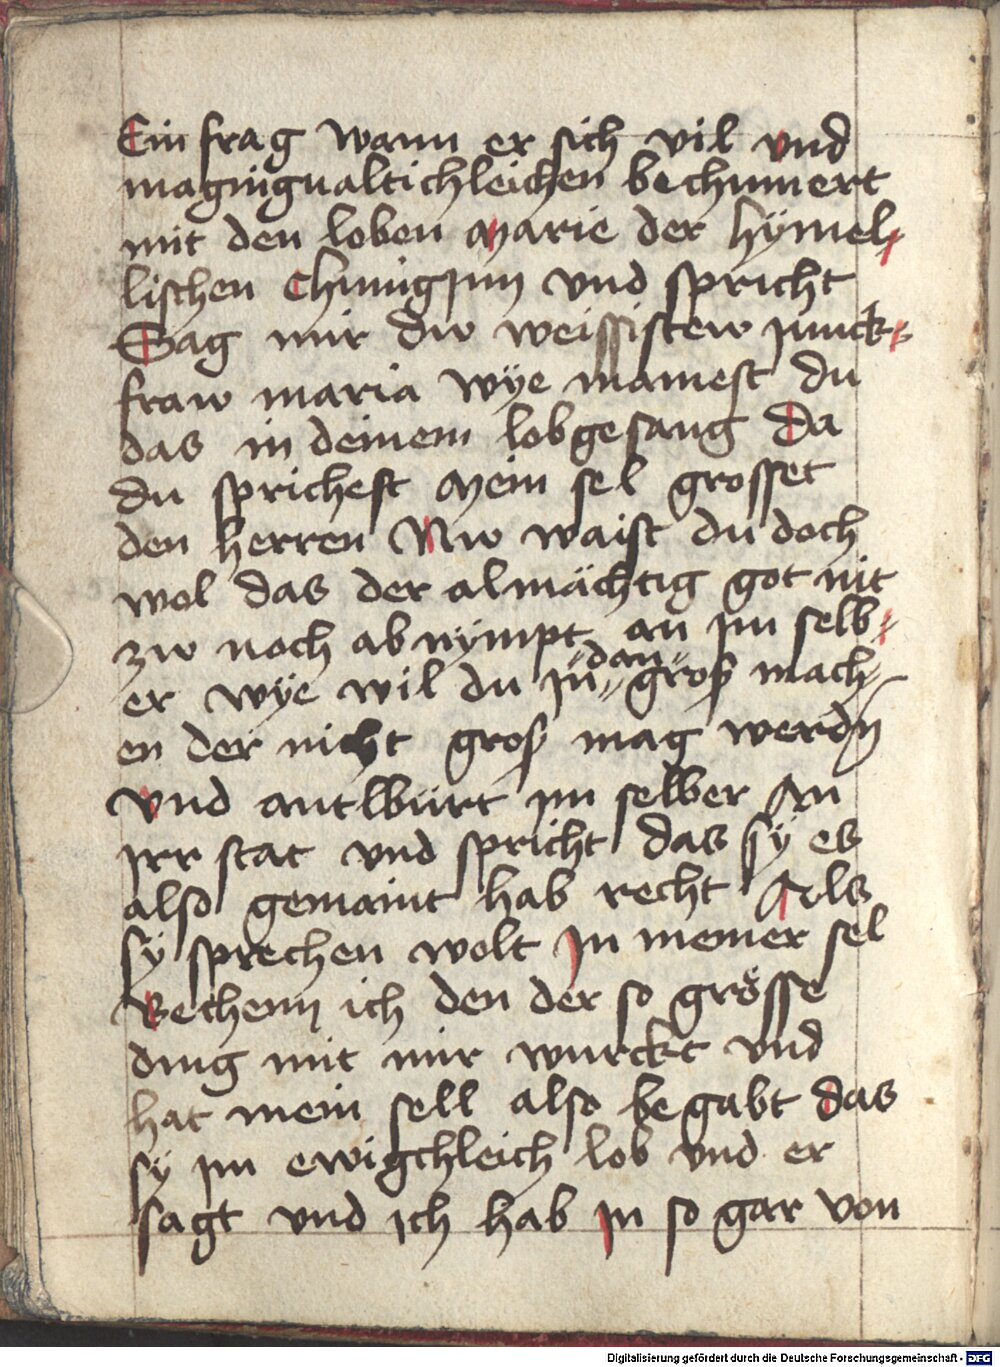 Ein frag wann er sich vil vnd
magnigualtichleichen bechumert
mit den loben Marie der hÿmel⸗
lischen Chunigjnn vnd spricht
Sag mir diw weissistew junck⸗
fraw maria wÿe mainest du
das in deinem lobgesang Da
du sprichest Mein sel grosset
den herren Nw waist du doch
wol das der almächtig got nit
zw noch ab nÿmpt an jm selb⸗
er wÿe wil du jn dan gros mach⸗
en der nicht gros mag werdn
vnd antlbürt jm selber An
jrr stat vnd spricht das sÿ es
also gemaint hab recht Als
sÿ sprechen wolt Jn meiner sel
Bechenn ich den der so grösse
ding mit mir wurckt vnd
hat mein sell also begabt das
sÿ jm ewigchleich lob vnd er
sagt vnd ich hab jn so gar von
Digitalisierung gefördert durch die Deutsche Forschungsgemeinschaft - DFG